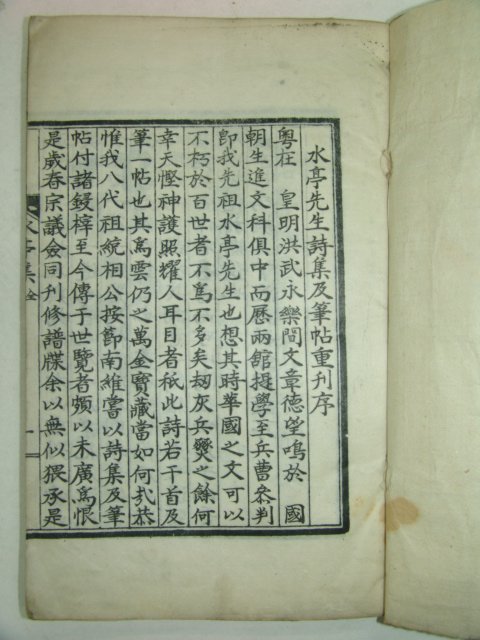 水亭先生詩集及筆帖重刋序
粤在 皇明洪武永樂間文章德望鳴於 國
朝生進文科俱中而歷兩館提學至兵曹叅判
卽我先祖水亭先生也想其時華國之文可以
不朽於百世者不爲不多矣刼灰兵燹之餘何
幸天慳神護照耀人耳目者秖此詩若干首及
筆一帖也其爲雲仍之萬金寶藏當如何㢤恭
惟我八代祖統相公按節南維嘗以詩集及筆
帖付諸鋟梓至今傳于世覽者頗以未廣爲恨
是歲春宗議僉同刋修譜牒余以無似猥承是
水亭集 全
一